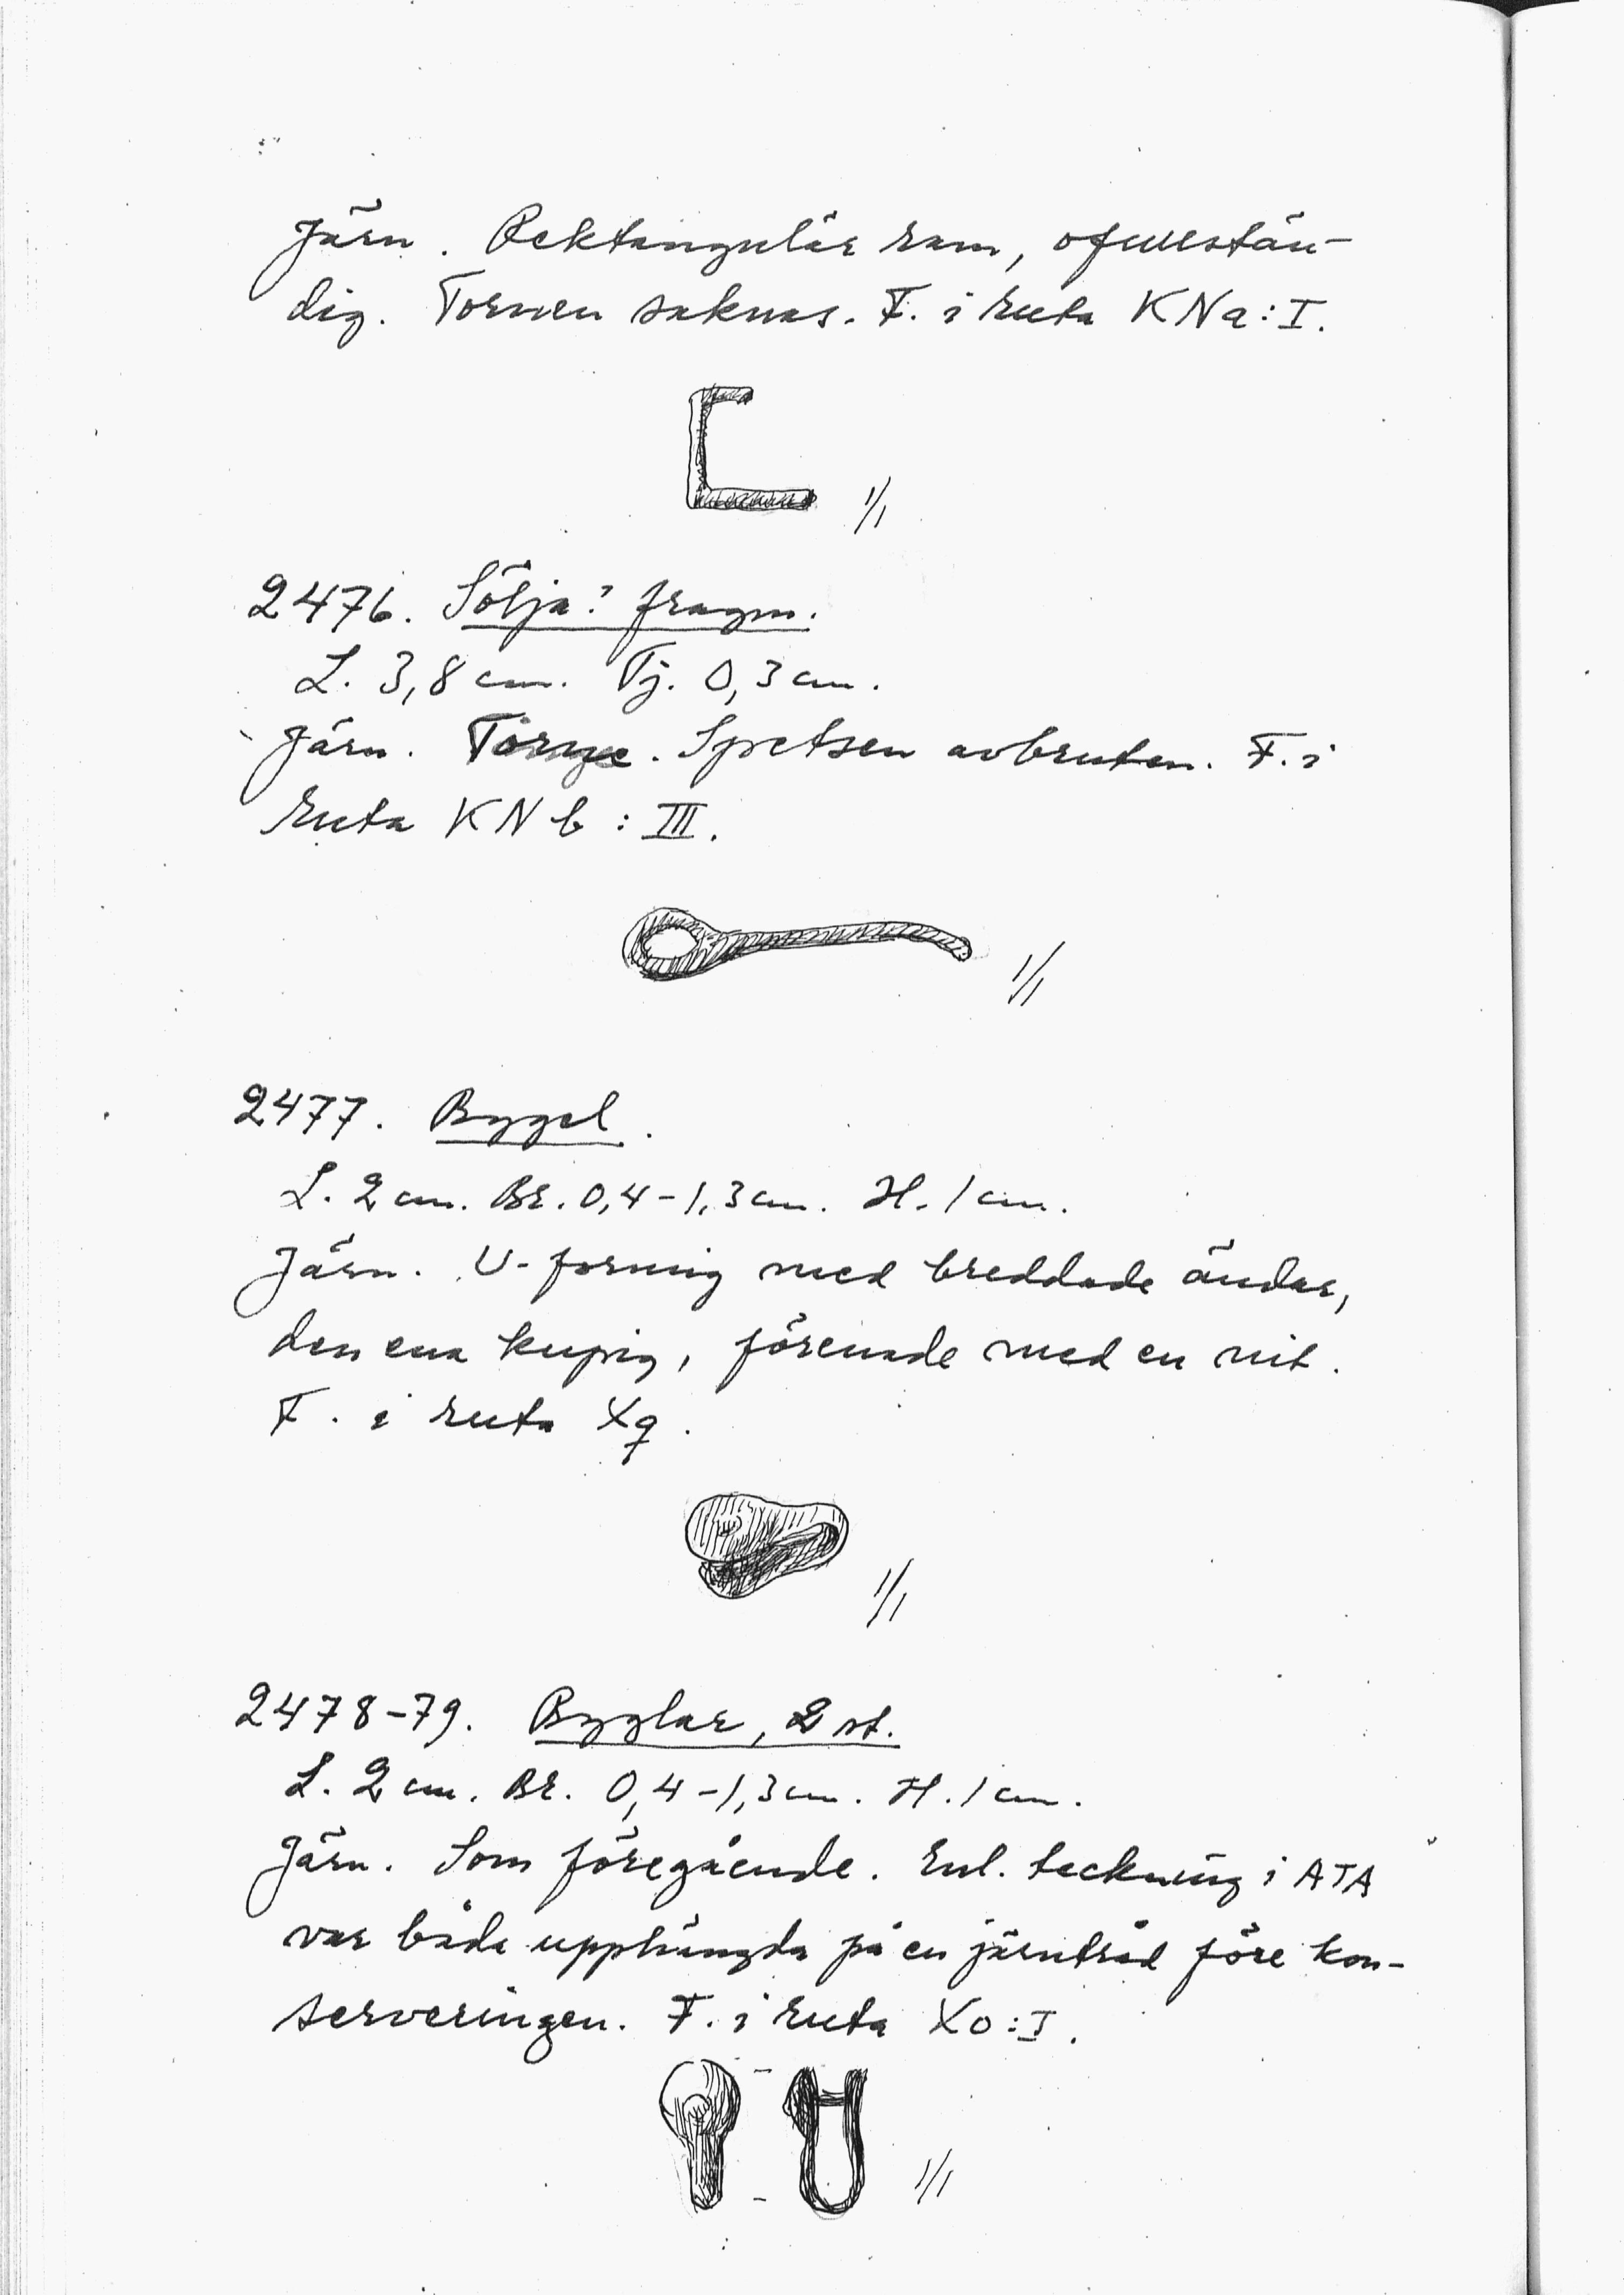 Järn. Rektangulär ram, ofullstän-
dig. Tornen saknas. F. i ruta KNa:I.
1/1
2476. Sölja? fragm.
L. 3,8 cm. Tj. 0,3 cm.
Järn. Torne. Spetsen avbruten. F. i
ruta KN b : III.
1/1
2477. Bygel.
L. 2 cm. Br. 0,4-1,3 cm. H. 1 cm.
Järn. U-formig med breddade ändar,
den ena kupig, förenade med en nit.
F. i ruta Xq.
1/1
2478-79. Byglar, 2 st.
L. 2 cm. Br. 0,4-1,3 cm. H. 1 cm.
Järn. Som föregående. Enl. teckning i ATA
var båda upphängda på en järntråd före kon-
serveringen. F. i ruta Xo:I.
1/1